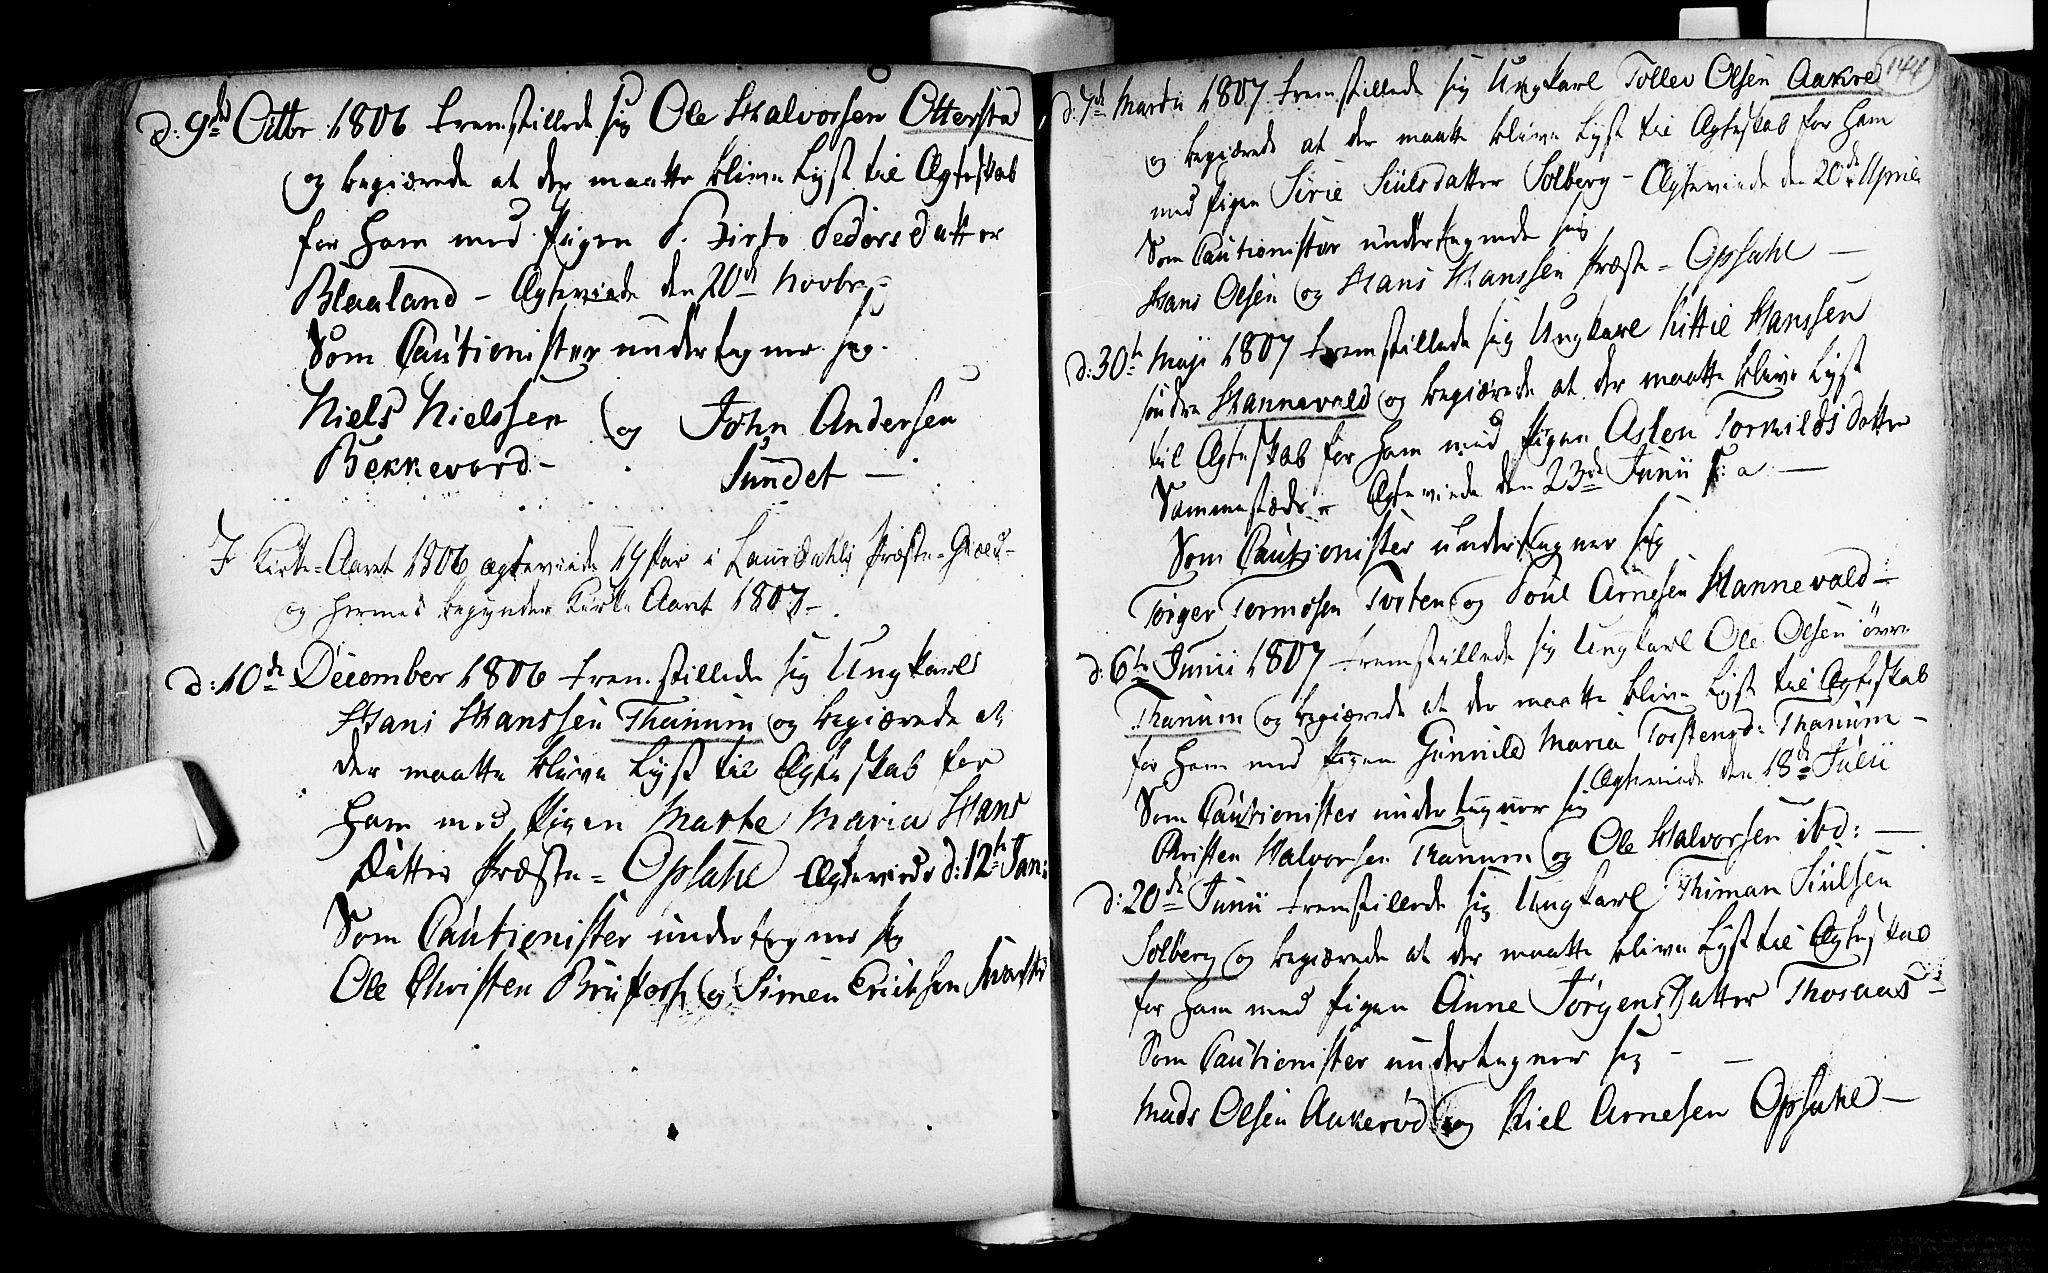 d: 9de Octbr 1806 Fremstillede sig Ole Halvorsen Otterstad
og begiærede at der maatte blive Lyst til Ægteskab
for Ham med Pigen Birte Peders Datter
Blaaland - Ægteviede den 20de Novbr
Som Cautionister undertegner sig
Niels Nielssen og John Andersen
Bekkevard - Sundet -
I Kirke-Aaret 1806 ægteviede 14 Par i Laurdahls Præste-Gield
og hermed begynder Kirke Aaret 1807 -
d: 10de December 1806 Fremstillede sig Ungkarl
Hans Hanssen Thanum og begiærede at
der maatte blive Lyst til Ægteskab for
Ham med Pigen Marte Maria Hans
Datter Præste-Opsahl Ægteviede d: 12te Jan:
Som Cautionister undertegner sig
Ole Christen og Simen Erichsen
144
d: 7de Martii 1807 Fremstillede sig Ungkarl Tollev Olsen Aakre
og begiærede at der maatte blive Lyst til Ægteskab for Ham
med Pigen Sirie Siulsdatter Solberg - Ægteviede den 20de April
Som Cautionister undertegnede sig
Hans Olsen og Hans Hanssen Præste-Opsahl -
d: 30te Maji 1807 Fremstillede sig Ungkarl Kittil Hanssen
søndre Hannevald og begiærede at der maatte blive Lyst
til Ægteskab for Ham med Pigen Aslou Torkilds Datter
Sammestæds - Ægteviede den 23de Junii s: a: -
Som Cautionister undertegner sig
Torger Tormosen Tveten og Poul Arnesen Hannevald -
d: 6te Junii 1807 Fremstillede sig Ungkarl Ole Olsen övre
Thanum og begiærede at der maatte blive Lyst til Ægteskab
for Ham med Pigen Gunnild Maria Torstensd: Thanum -
Ægteviede den 18de Julii
Som Cautionister undertegner sig
Christen Halvorsen Thanum og Ole Halvorsen ibd: -
d: 20de Junii Fremstillede sig Ungkarl Thiman Siulsen
Solberg og begiærede at der maatte blive Lyst til Ægteskab
for Ham med Pigen Anne Jørgens Datter Thoraas -
Som Cautionister undertegner sig -
Mads Olsen Aakerød og Kiel Arnesen Opsahl -